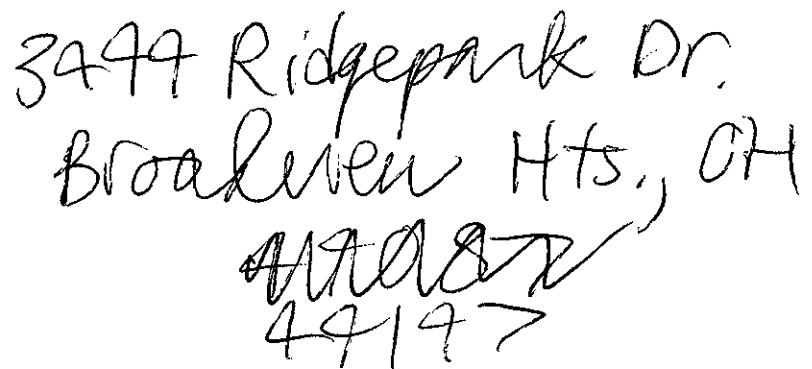 3444 Ridgepark Dr.
Broadview Hts., OH
44147